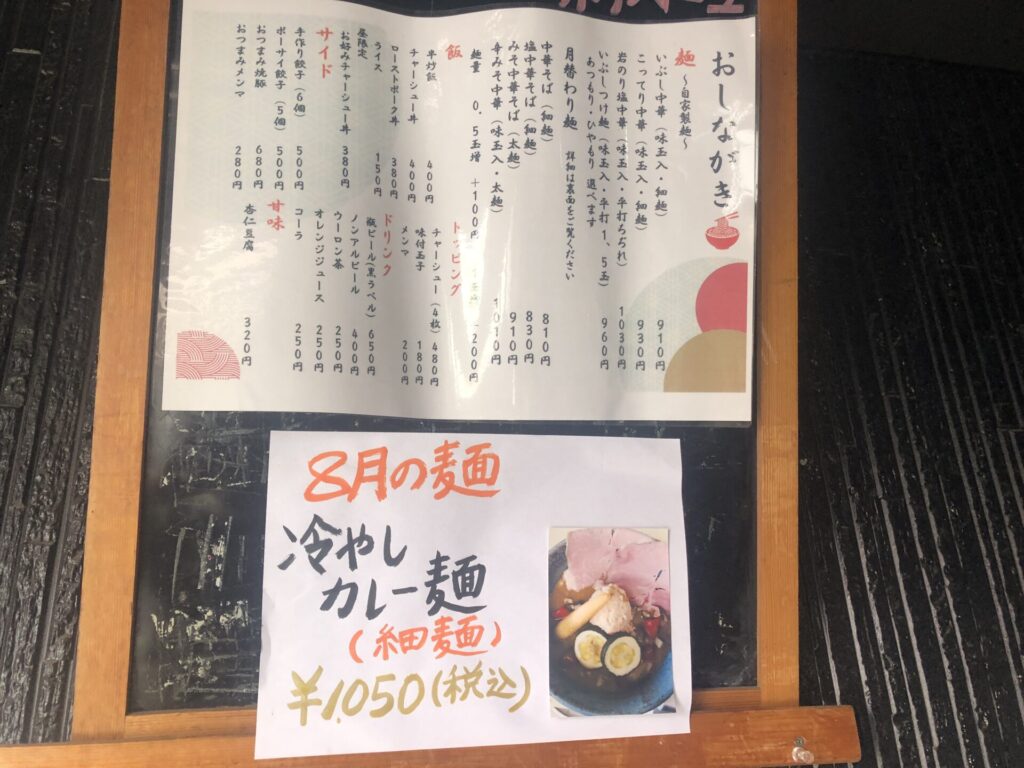 おしながき
麺 ～自家製麺～
いぶし中華（味玉入・細麺） 910円
こってり中華（味玉入・細麺） 930円
岩のり塩中華（味玉入・平打ちぢれ） 1030円
いぶしつけ麺（味玉入・平打1、5玉） 960円
あつもり・ひやもり 選べます
月替わり麺 詳細は裏面をご覧ください
中華そば（細麺） 810円
塩中華そば（細麺） 830円
みそ中華そば（太麺） 910円
辛みそ中華（味玉入・太麺） 1010円
麺量 0.5玉増 +100円
飯
半炒飯 400円
チャーシュー丼 400円
ローストポーク丼 380円
ライス 150円
昼限定
お好みチャーシュー丼 380円
サイド
手作り餃子（6個） 500円
ポーサイ餃子（5個） 500円
おつまみ焼豚 680円
おつまみメンマ 280円
トッピング
チャーシュー（4枚） 480円
味付玉子 180円
メンマ 200円
ドリンク
瓶ビール（黒ラベル） 650円
ノンアルビール 400円
ウーロン茶 250円
オレンジジュース 250円
コーラ 250円
甘味
杏仁豆腐 320円
8月の麺
冷やし
カレー麺
（細麺）
¥1,050（税込）